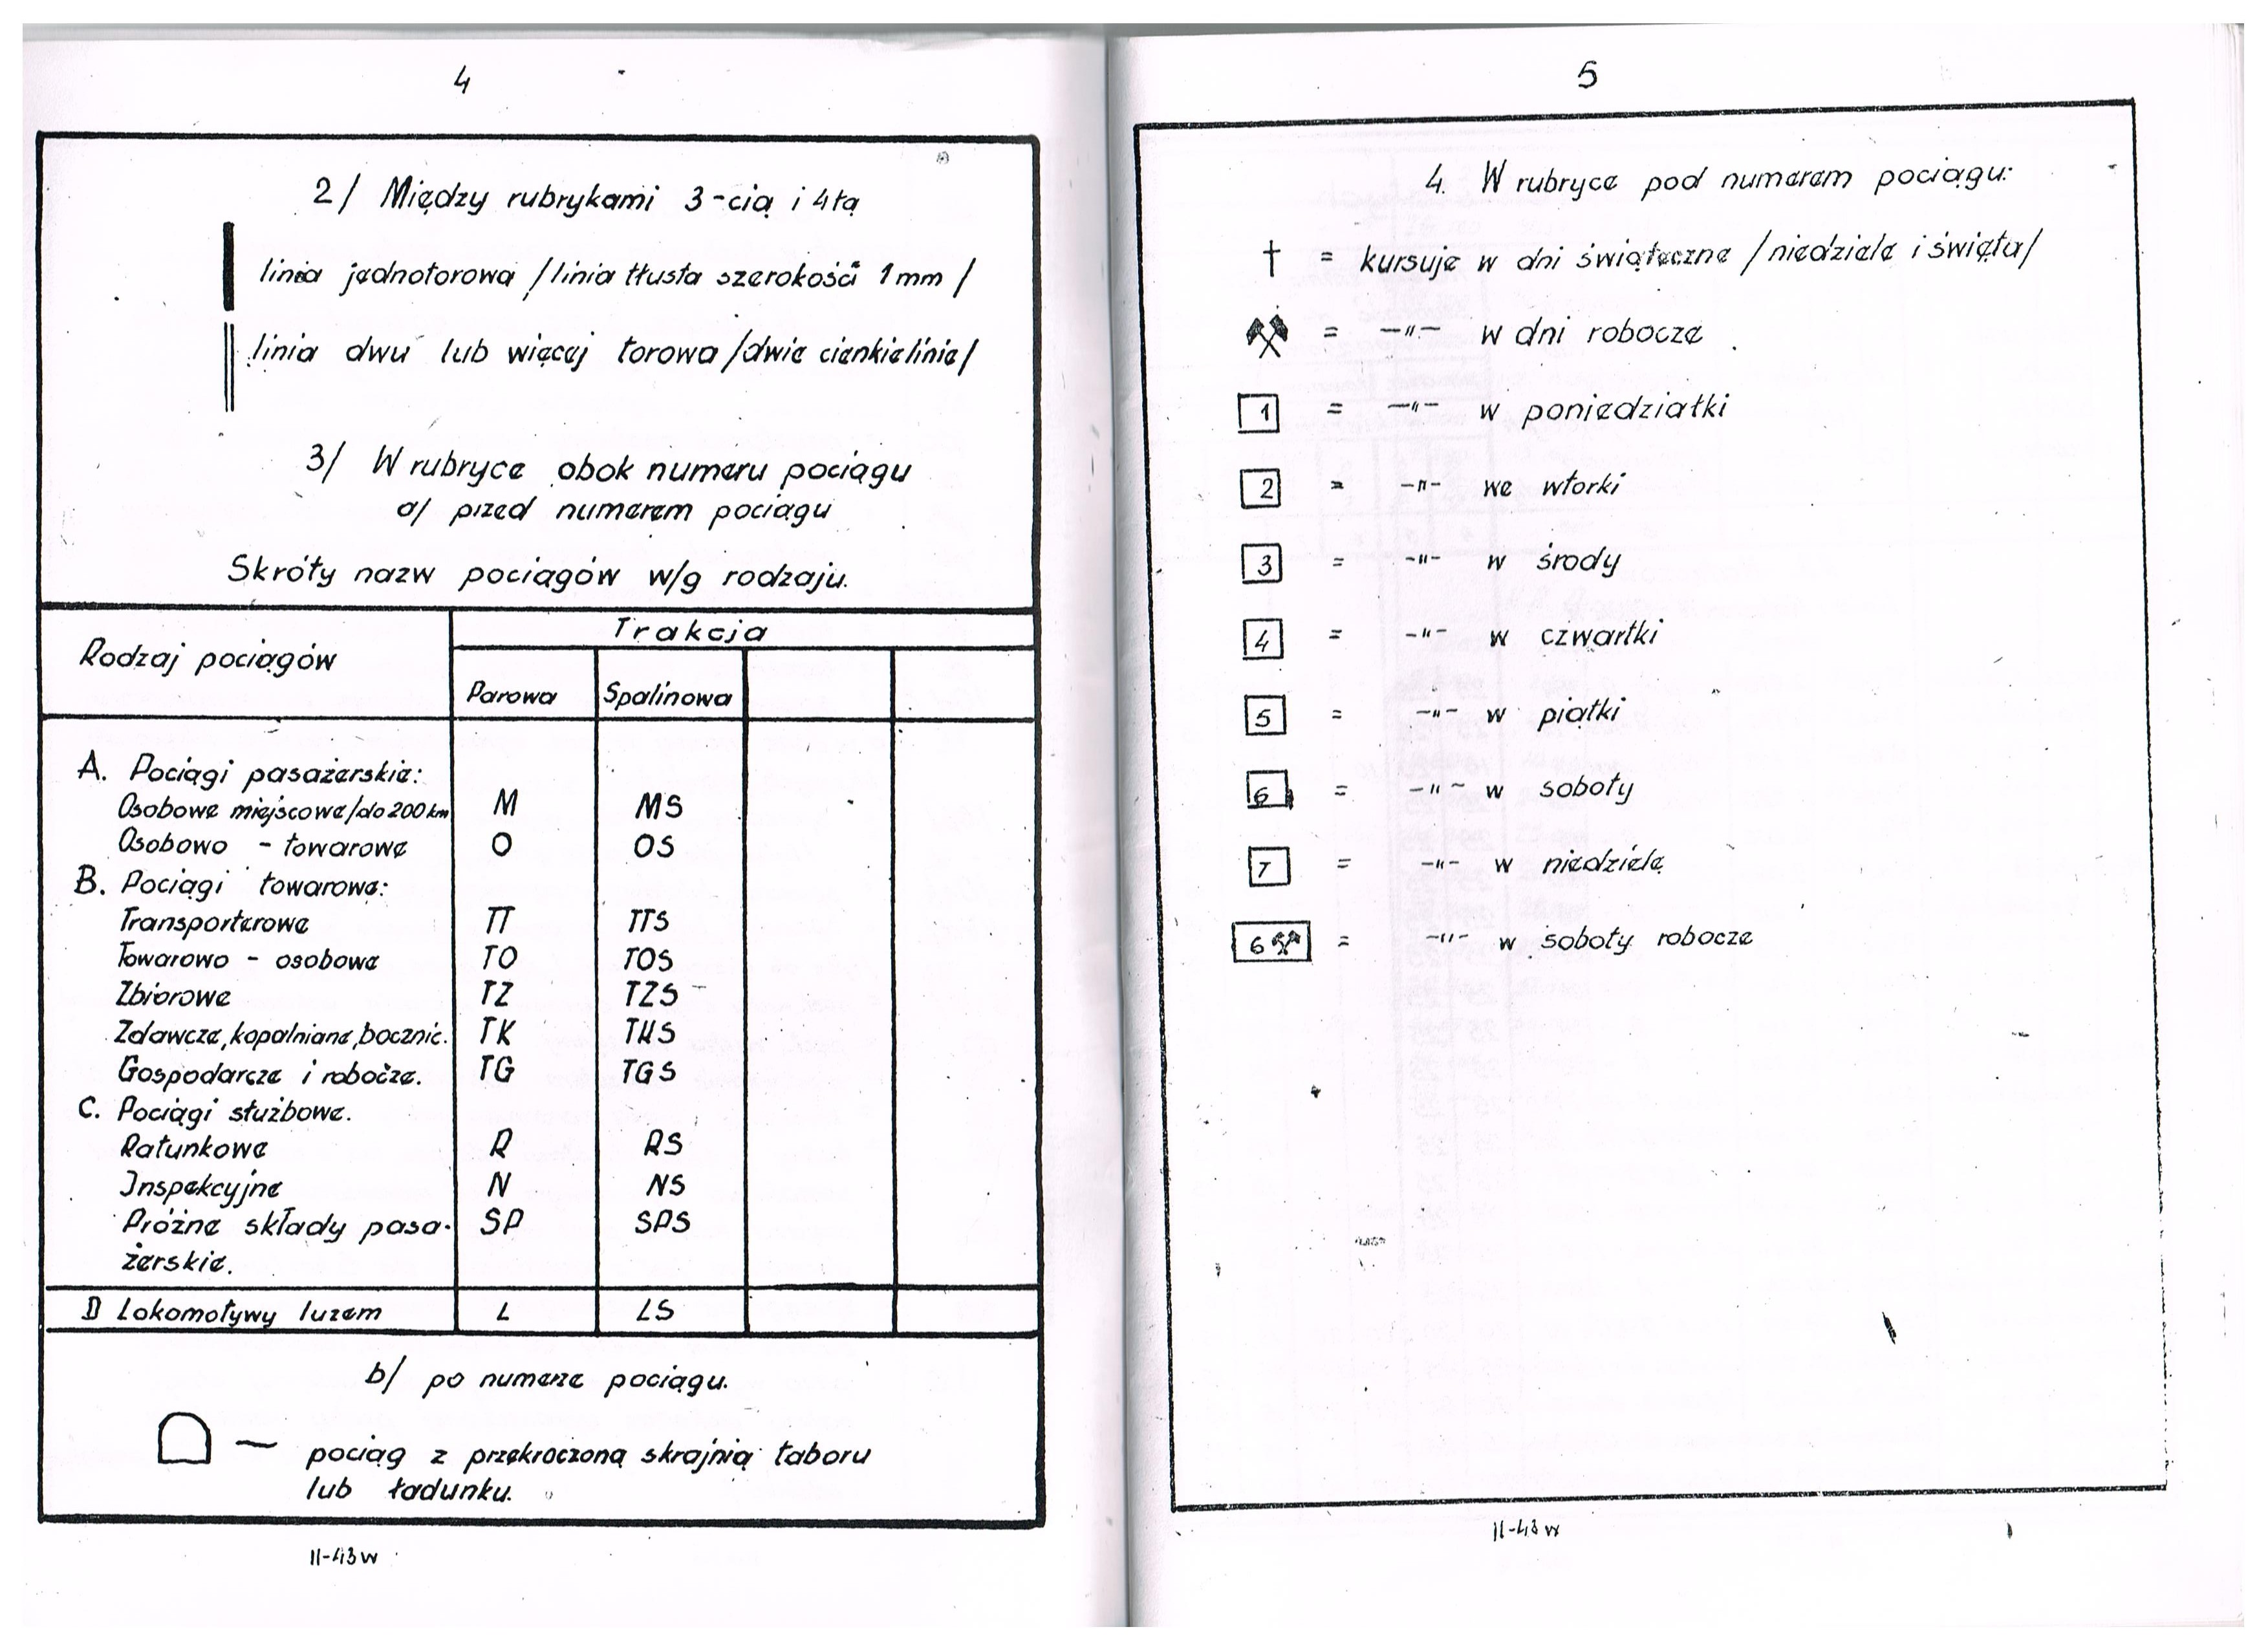 4
2/ Między rubrykami 3-cią i 4tą
linia jednotorowa /linia tłusta szerokości 1mm/
linia dwu lub więcej torowa /dwie cienkie linie/
3/ W rubryce obok numeru pociągu
a/ przed numerem pociągu
Skróty nazw pociągów w/g rodzaju.
Rodzaj pociągów Trakcja
Parowa Spalinowa
A. Pociągi pasażerskie:
Osobowe miejscowe/do 200 km M MS
Osobowo - towarowe O OS
B. Pociągi towarowe:
Transporterowe TT TTS
Towarowo - osobowe TO TOS
Zbiorowe TZ TZS
Zdawcze, kopalniane, bocznic. TK TKS
Gospodarcze i robocze. TG TGS
C. Pociągi służbowe.
Ratunkowe R RS
Inspekcyjne N NS
Próżne składy pasa- SP SPS
żerskie.
D Lokomotywy luzem L LS
b/ po numerze pociągu.
— pociąg z przekroczoną skrajnią taboru
lub ładunku.
11-43w
5
4. W rubryce pod numerem pociągu:
† = kursuje w dni świąteczne /niedziele i święta/
⚒ = —"— w dni robocze
1 = —"— w poniedziałki
2 = —"— we wtorki
3 = —"— w środy
4 = —"— w czwartki
5 = —"— w piątki
6 = —"— w soboty
7 = —"— w niedziele
6⚒ = —"— w soboty robocze
11-43w